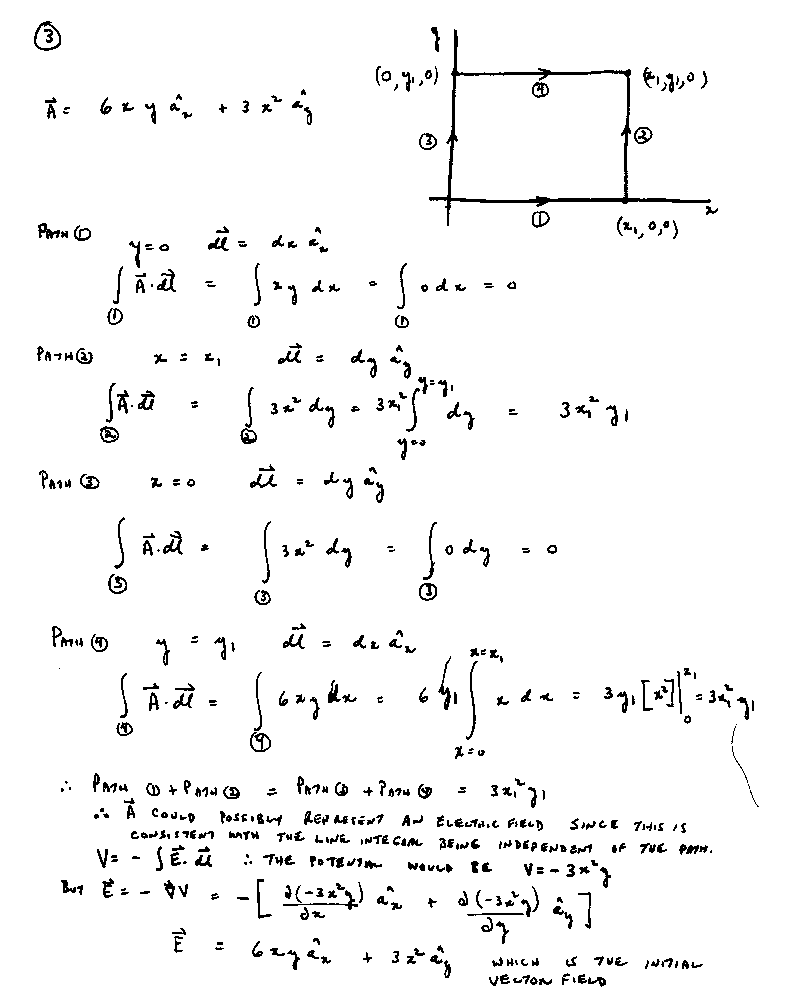 ③
y
(0, y₁, 0)
(x₁, y₁, 0)
④
A⃗ = 6xy âₓ + 3x² â_y
③
②
①
x
(x₁, 0, 0)
PATH ①
y=0 dl⃗ = dx âₓ
∫① A⃗·dl⃗ = ∫① xy dx = ∫① 0 dx = 0
PATH ② x = x₁ dl⃗ = dy â_y
∫② A⃗·dl⃗ = ∫② 3x² dy = 3x₁² ∫_{y=0}^{y=y₁} dy = 3x₁² y₁
PATH ③ x = 0 dl⃗ = dy â_y
∫③ A⃗·dl⃗ = ∫③ 3x² dy = ∫③ 0 dy = 0
PATH ④ y = y₁ dl⃗ = dx âₓ
∫④ A⃗·dl⃗ = ∫④ 6xy dx = 6y₁ ∫_{x=0}^{x=x₁} x dx = 3y₁ [x²]|₀^{x₁} = 3x₁² y₁
∴ PATH ① + PATH ② = PATH ③ + PATH ④ = 3x₁² y₁
∴ A⃗ COULD POSSIBLY REPRESENT AN ELECTRIC FIELD SINCE THIS IS
CONSISTENT WITH THE LINE INTEGRAL BEING INDEPENDENT OF THE PATH.
V = - ∫E⃗·dl⃗ ∴ THE POTENTIAL WOULD BE V = -3x²y
BUT E⃗ = -∇V = -[ ∂(-3x²y)/∂x âₓ + ∂(-3x²y)/∂y â_y ]
E⃗ = 6xy âₓ + 3x² â_y WHICH IS THE INITIAL
VECTOR FIELD